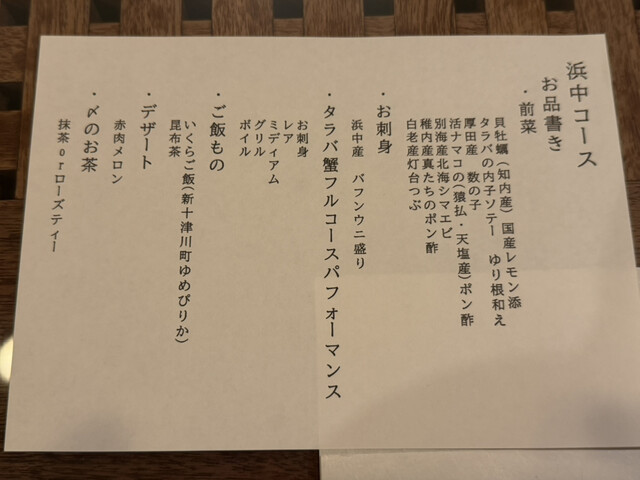 浜中コース
お品書き
・前菜
貝牡蠣（知内産）国産レモン添
タラバの内子ソテー　ゆり根和え
厚田産　数の子
活ナマコの（猿払・天塩産）ポン酢
別海産北海シマエビ
稚内産真たちのポン酢
白老産灯台つぶ
・お刺身
浜中産　バフンウニ盛り
・タラバ蟹フルコースパフォーマンス
お刺身
レア
ミディアム
グリル
ボイル
・ご飯もの
いくらご飯（新十津川町ゆめぴりか）
昆布茶
・デザート
赤肉メロン
・〆のお茶
抹茶orローズティー